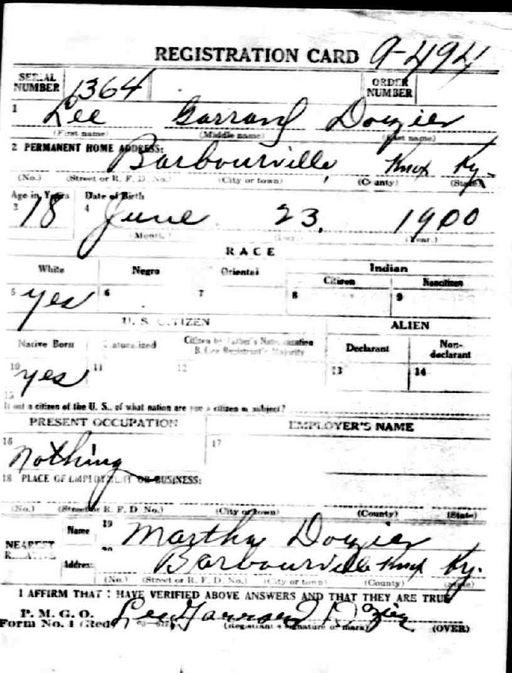 REGISTRATION CARD 9-494
SERIAL NUMBER 1364 ORDER NUMBER
1 Lee Garrard Dozier
(First name) (Middle name) (Last name)
2 PERMANENT HOME ADDRESS: Barbourville, Knox Ky.
(No.) (Street or R. F. D. No.) (City or town) (County) (State)
Age in Years Date of Birth
3 18 4 June 23, 1900
(Month.) (Day.) (Year.)
RACE
White Negro Oriental Indian
Citizen Noncitizen
5 yes 6 7 8 9
U. S. CITIZEN ALIEN
Native Born Naturalized Citizen by Father's Naturalization Before Registrant's Majority Declarant Non-declarant
10 yes 11 12 13 14
15
If not a citizen of the U. S., of what nation are you a citizen or subject?
PRESENT OCCUPATION EMPLOYER'S NAME
16 nothing 17
18 PLACE OF EMPLOYMENT OR BUSINESS:
(No.) (Street or R. F. D. No.) (City or town) (County) (State)
NEAREST RELATIVE Name 19 Martha Dozier
Address 20 Barbourville Knox Ky.
(No.) (Street or R. F. D. No.) (City or town) (County) (State)
I AFFIRM THAT I HAVE VERIFIED ABOVE ANSWERS AND THAT THEY ARE TRUE
P. M. G. O.
Form No. 1 (Red) Lee Garrard Dozier
(Registrant's signature or mark) (OVER)